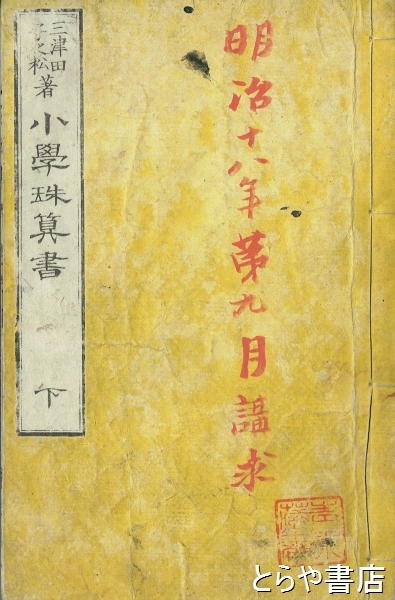 明治十八年第九月講求
三津田
之松
著
小學珠算書
下
とらや書店